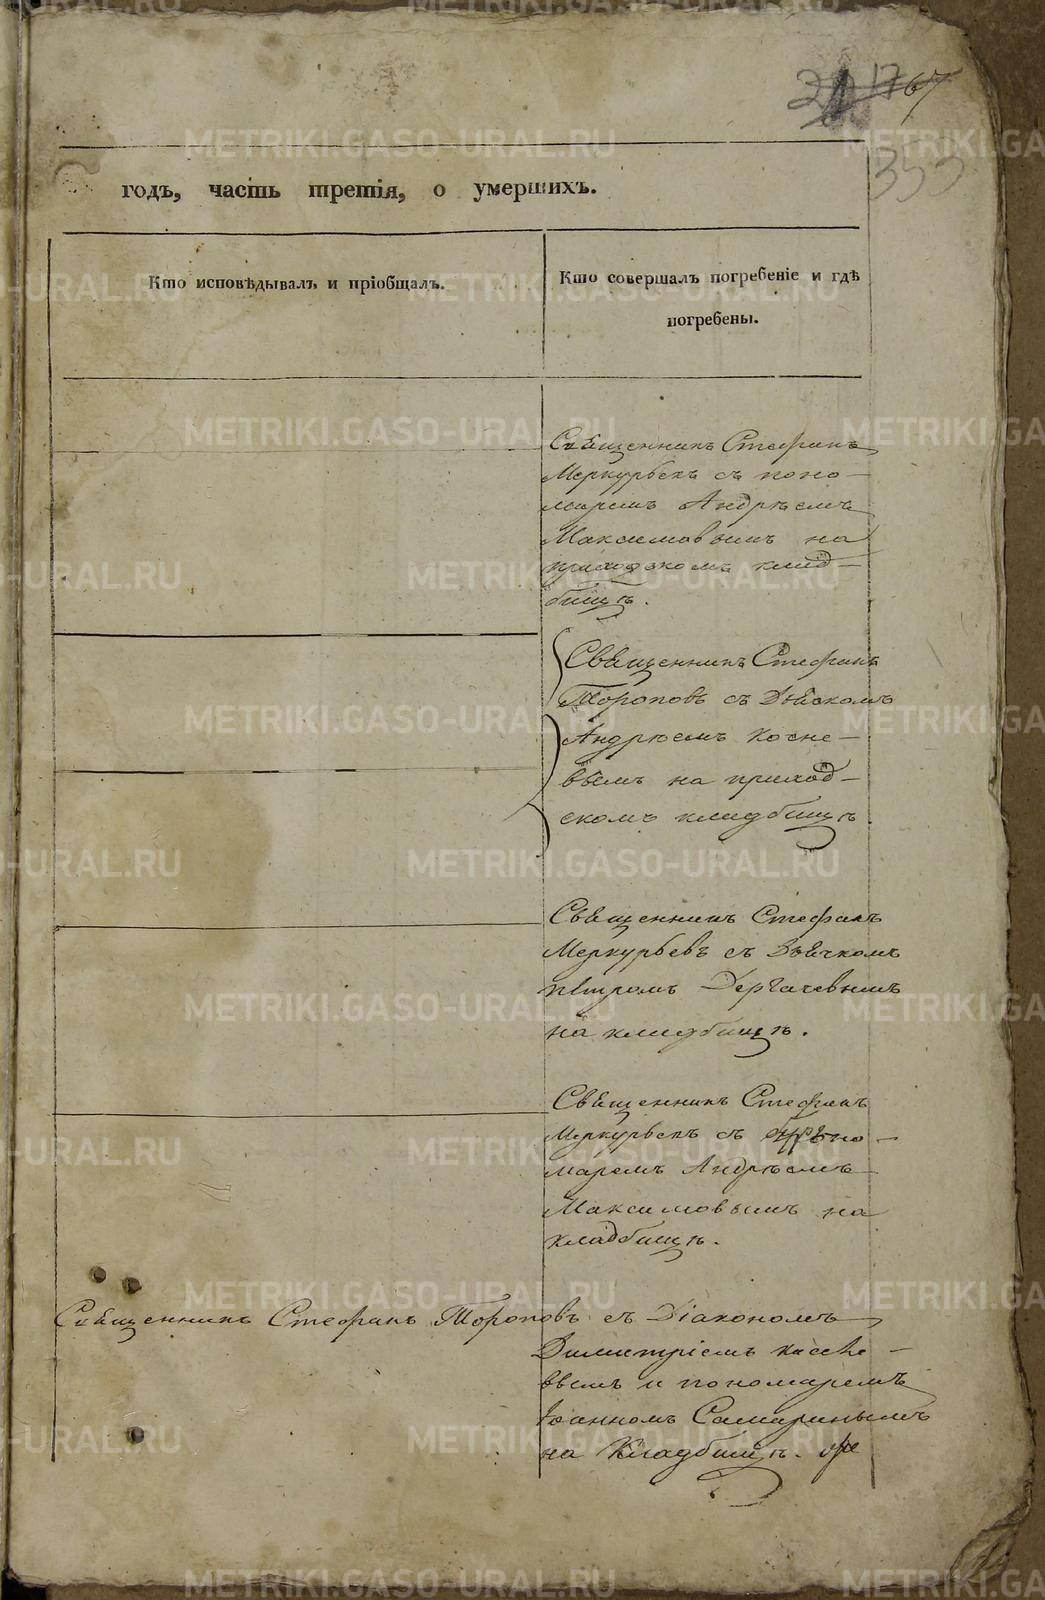 353
годъ, часть третія, о умершихъ.
Кто исповѣдывалъ и пріобщалъ.
Кто совершалъ погребеніе и гдѣ
погребены.
Священникъ Стефанъ
Меркурьевъ съ поно-
маремъ Андрѣемъ
Максимовымъ на
приходскомъ клад-
бищѣ.
Священникъ Стефанъ
Тороповъ съ Дьячкомъ
Андрѣемъ
на приход-
скомъ кладбищѣ
Священникъ Стефанъ
Меркурьевъ съ Дьячкомъ
Петромъ Дергачевымъ
на кладбищѣ.
Священникъ Стефанъ
Меркурьевъ съ поно-
маремъ Андрѣемъ
Максимовымъ на
кладбищѣ.
Священникъ Стефанъ Тороповъ съ Діакономъ
Димитріемъ
и пономаремъ
Іоанномъ Самаринымъ
на Кладбищѣ.
METRIKI.GASO-URAL.RU